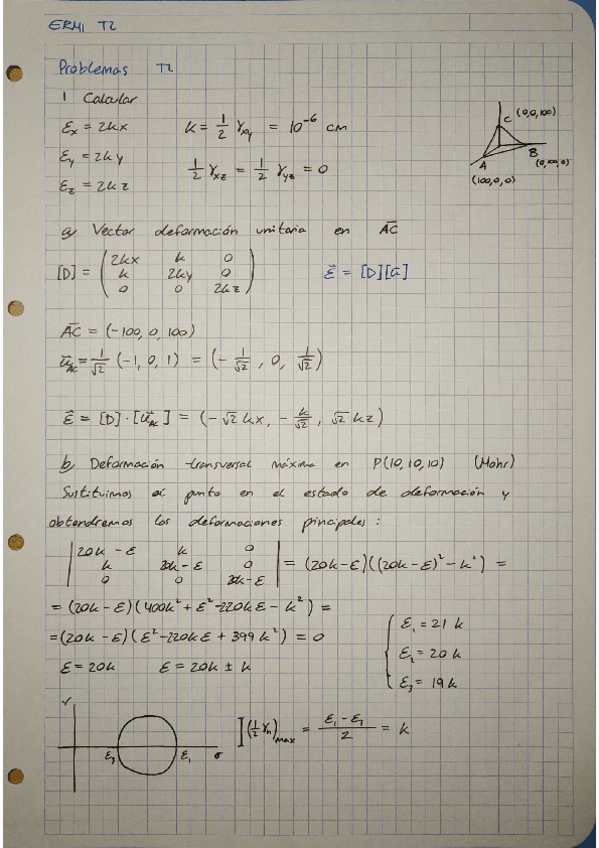 ERMI T2
Problemas T2
1 Calcular
εx = 2kx   k = 1/2 γxy = 10^-6 cm
εy = 2ky   1/2 γxz = 1/2 γyz = 0
εz = 2kz
C (0,0,100)
B (0,100,0)
A (100,0,0)
a) Vector deformación unitaria en AC
[D] = ( 2kx k 0
k 2ky 0
0 0 2kz )
ε⃗ = [D][ū]
AC = (-100, 0, 100)
ūAC = 1/√2 (-1, 0, 1) = (- 1/√2, 0, 1/√2)
ε⃗ = [D]·[ūAC] = (-√2 kx, - k/√2, √2 kz)
b) Deformación transversal máxima en P(10,10,10) (Mohr)
Sustituimos el punto en el estado de deformación y
obtendremos las deformaciones principales:
| 20k - ε k 0
k 20k - ε 0
0 0 20k - ε | = (20k - ε)((20k - ε)² - k²) =
= (20k - ε)(400k² + ε² - 220kε - k²) =
= (20k - ε)(ε² - 220kε + 399k²) = 0
ε = 20k   ε = 20k ± k
{ ε1 = 21k
ε2 = 20k
ε3 = 19k
ε3 ε1 σ
(1/2 γn)max = (ε1 - ε3)/2 = k